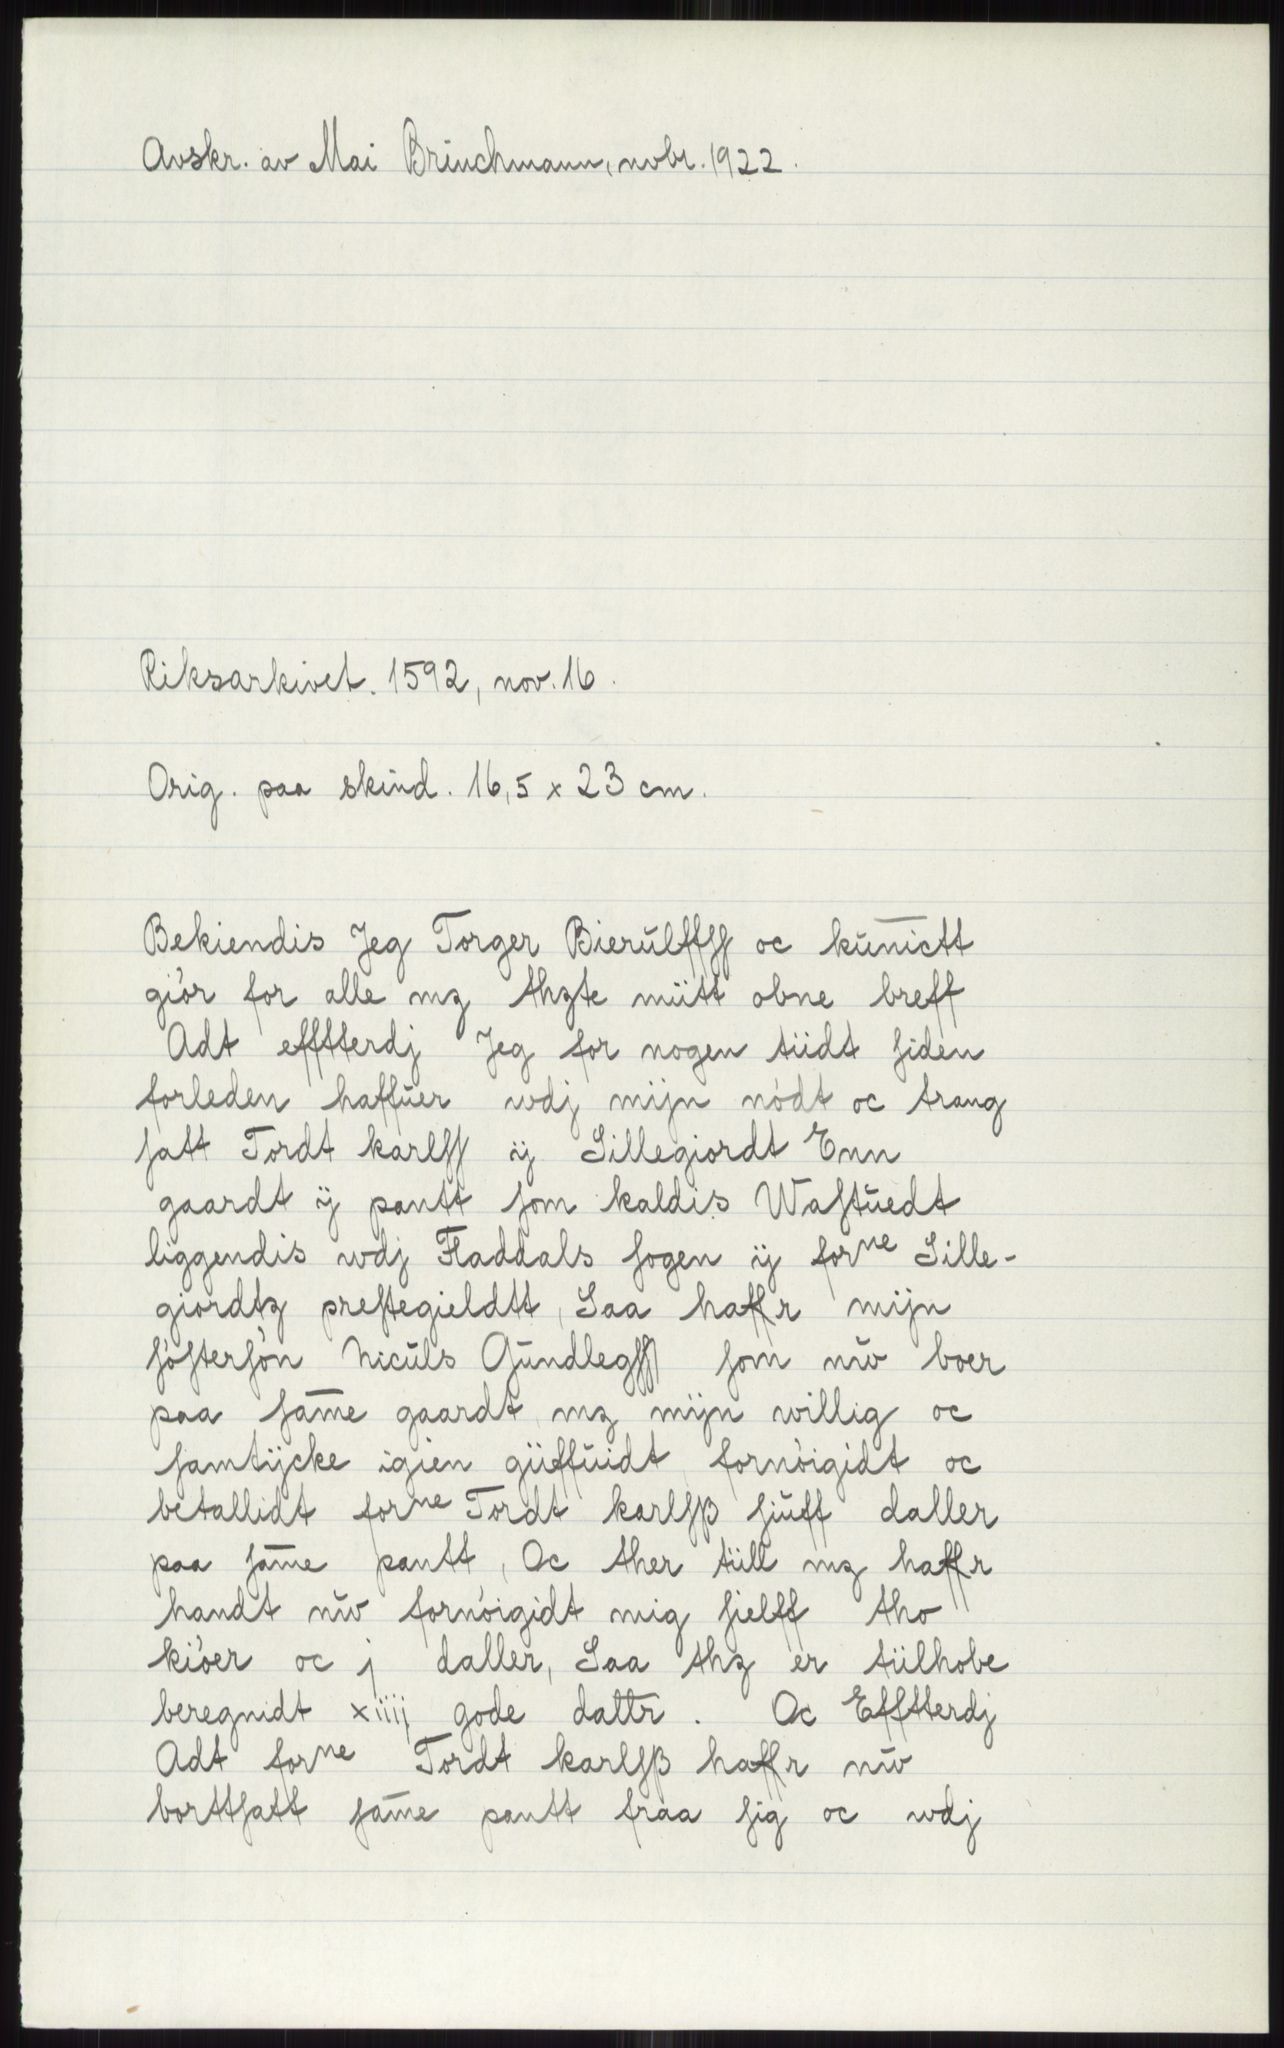 Avskr. av Mai Brinchmann, nvbr. 1922.
Riksarkivet. 1592, nov. 16.
Orig. paa skind. 16,5 x 23 cm.
Bekiendis Jeg Torger Bierŭlffſſ oc kŭnictt
giör for alle mz thzte miitt obne breff
Adt effterdj Jeg for nogen tiidt ſiden
forleden haffŭer wdj mijn nödt oc trang
ſatt Tordt karlſſ ij Sillegiordt Enn
gaardt ÿ pantt ſom kaldis Waſtŭedt
liggendis wdj Fladdals ſogen ij forne Sille-
giordtz preſtegieldtt, Saa haffr mijn
ſöſterſön Nicŭls Gŭndlegſſ ſom nŭ boer
paa ſam̄e gaardt mz mijn willig oc
ſamtÿcke igien giiffŭidt fornöigidt oc
betallidt forne Tordt karlſβ ſiŭff daller
paa ſam̄e pantt, Oc ther tiill mz haffr
handt nŭ fornöigidt mig ſielff tho
kiöer oc j daller, Saa thz er tiilhobe
beregnidt xiiij gode dallr. Oc Effterdj
Adt forne Tordt karlſβ haffr nŭ
borttſatt ſam̄e pantt fraa ſig oc wdj